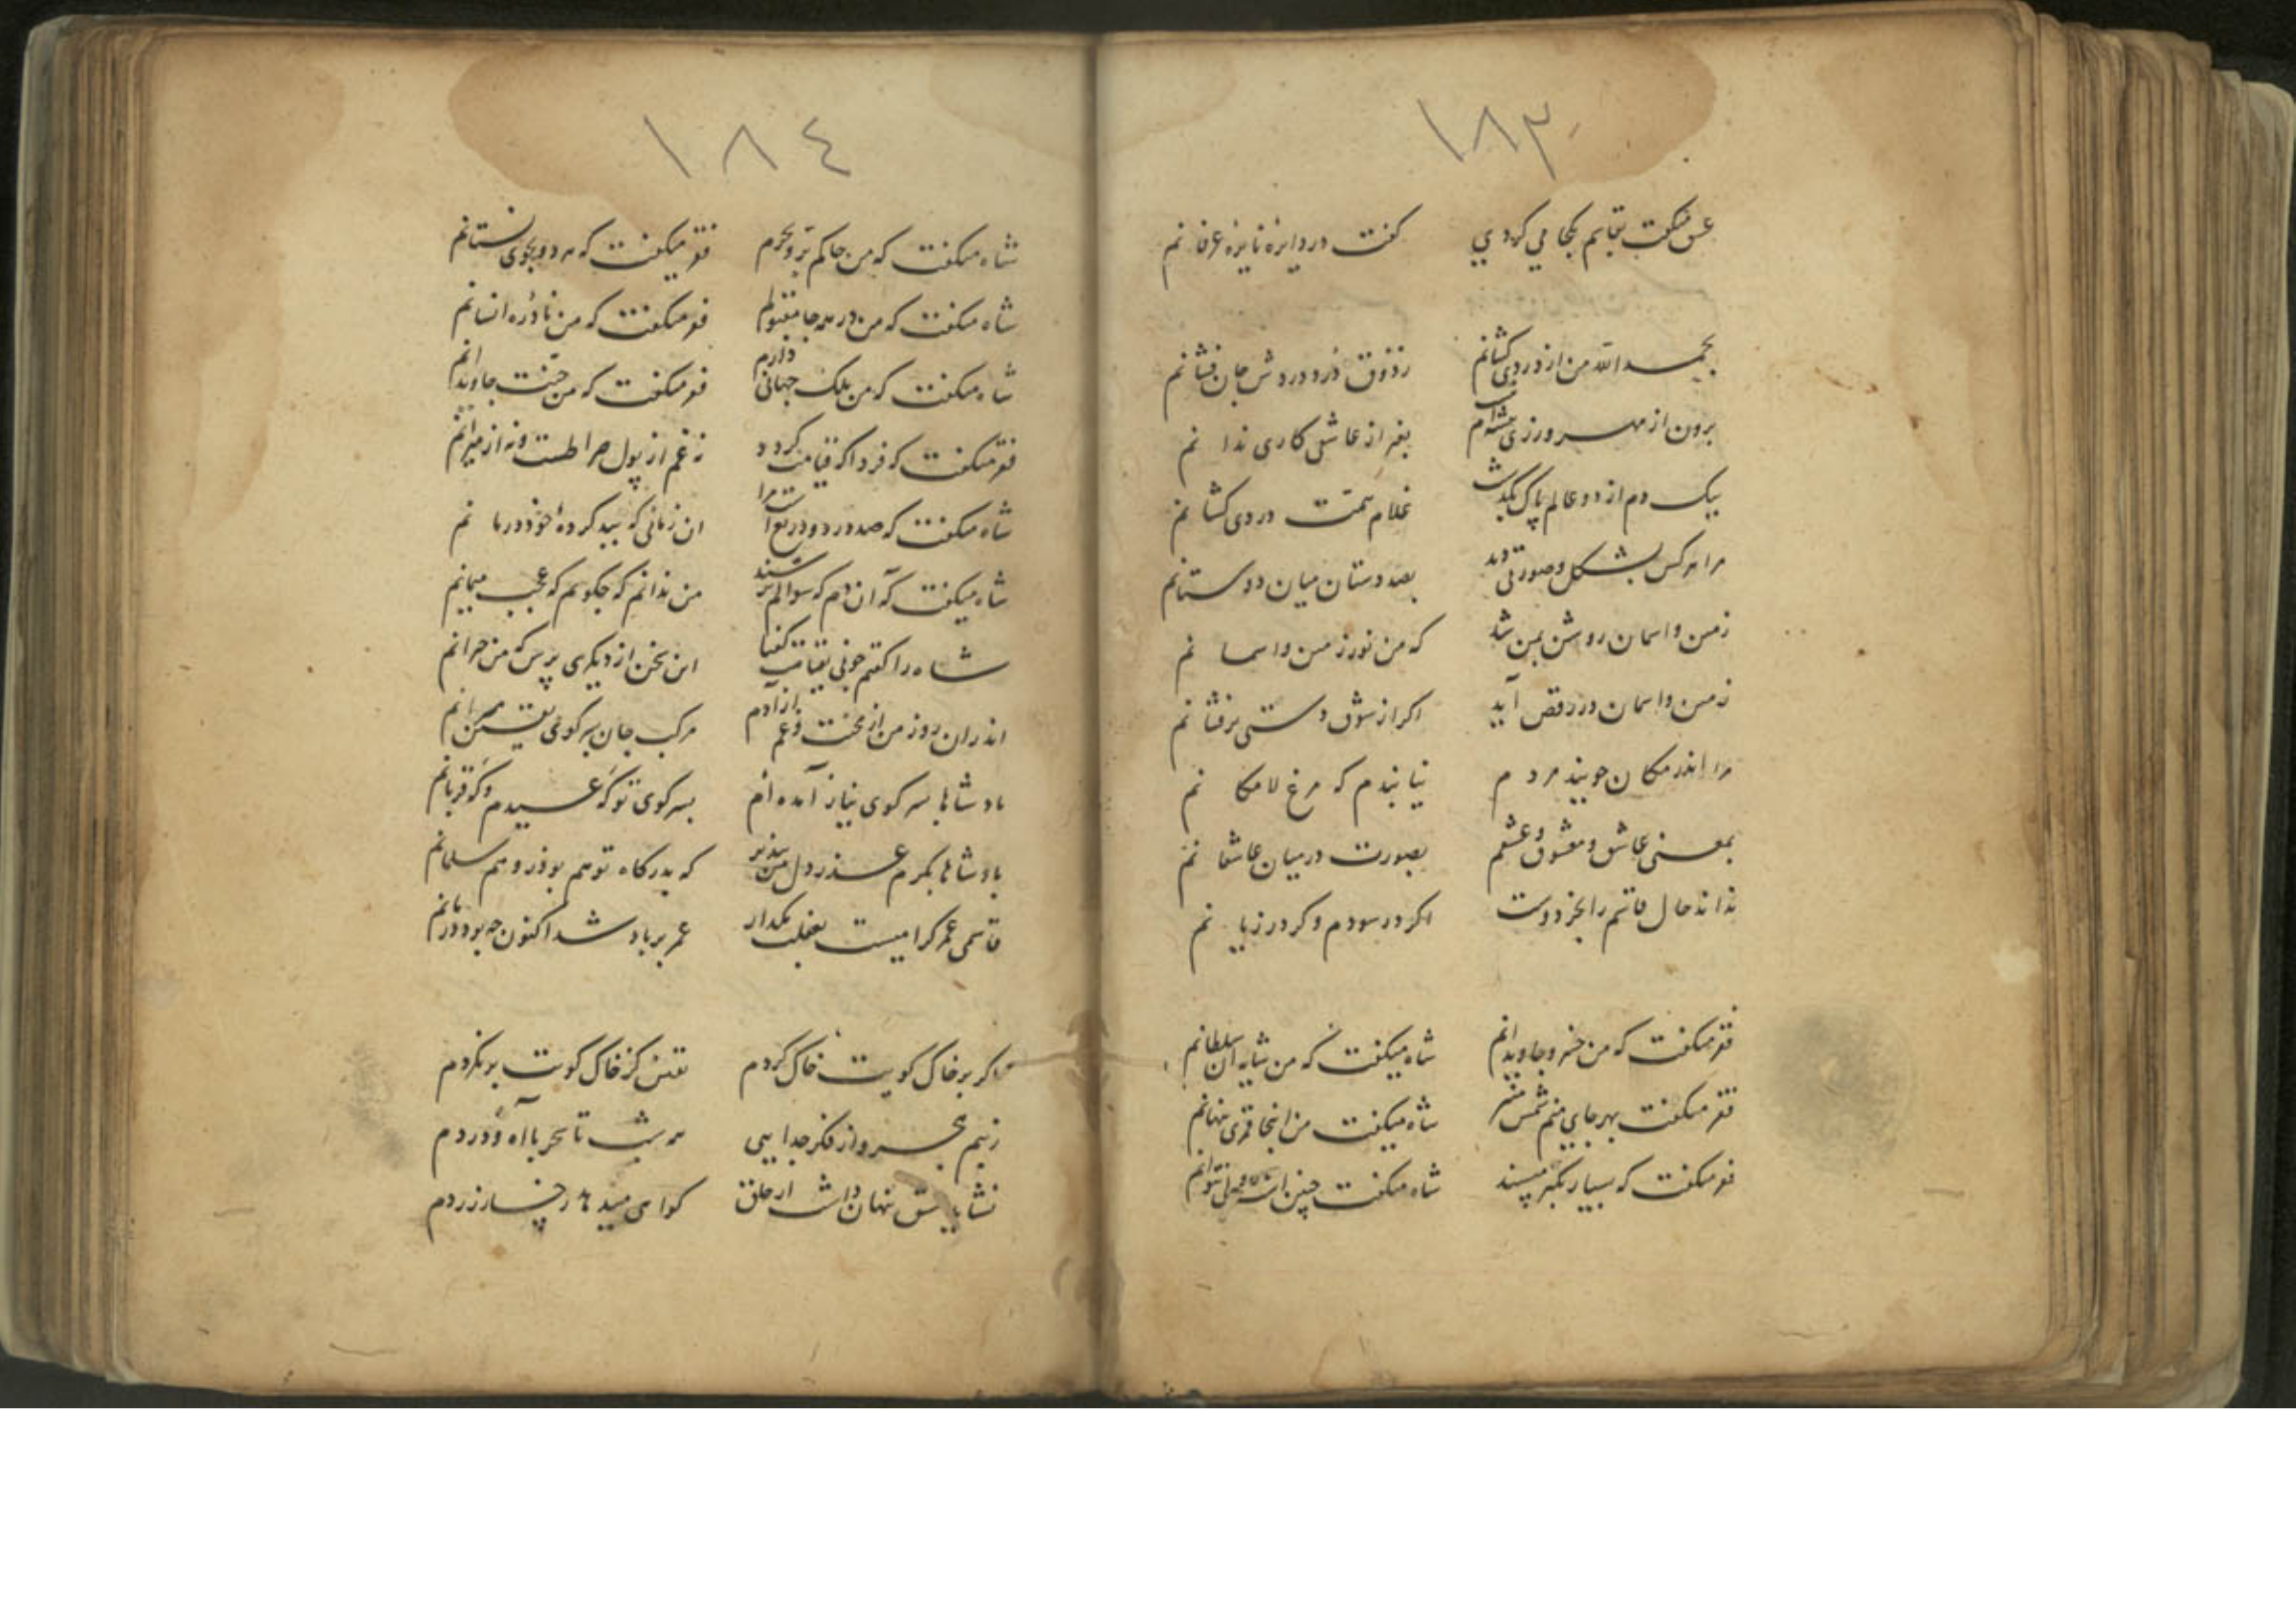 ١٨٣
عشق میکفت بقاسم بکجا می کردی کفت در دایرۀ نایرۀ عرفانم
بحمد الله من از دردی کشانم ز ذوق درد دردش جان فشانم
برون از مهر ورزی بغیر از عاشقی کاری ندانم
بیک دم از دو عالم پاک بکذشت غلام همت دردی کشانم
مرا هر کس بشکل و صورتی دید بصد دستان میان دوستانم
زمین و اسمان روشن بمن شد که من نور زمین و اسمانم
زمین و اسمان در رقص آید اکر از شوق دستی برفشانم
مرا اندر مکان جویند مردم نیابندم که مرغ لامکانم
بمعنی عاشق و معشوق و عشقم بصورت در میان عاشقانم
نداند حال قاسم را بجز دوست اکر در سودم و کر در زیانم
فقر میکفت که من خسرو جاویدانم شاه میکفت که من شاه سلطانم
فقر میکفت بهر جای منم شمس منیر شاه میکفت من اینجا قمری پنهانم
فقر میکفت که بسیار تکبر مپسند شاه میکفت چنین است ولی نتوانم
١٨٤
شاه میکفت که من حاکم بر و بحرم فقر میکفت که هر دو بجوی نستانم
شاه میکفت که من در همه جا مقبولم فقر میکفت که من نادرۀ انسانم
شاه میکفت که من ملک جهانی دارم فقر میکفت که من جنت جاویدانم
فقر میکفت که فردا که قیامت کردد نه غم از پول صراطست و نه از میزانم
شاه میکفت که صد درد و دریغ است مرا ان زمانی که بید کردۀ خود درمانم
شاه میکفت که آن دم که سوالم پرسند من ندانم که چکویم که عجب میمانم
شاه را کفتم چونی بقیامت کفتا این سخن از دیکری پرس که من حیرانم
اندران روز من از محنت و غم ازادم مرکب جان بسر کوی یقین میرانم
بادشاها بسر کوی نیاز آمده ام بسر کوی تو که عیدم و که قربانم
بادشاها بکرم عذر دل من بپذیر که بدرکاه تو هم بوذر و هم سلمانم
قاسمی عمر کرامیست بغفلت مکذار عمر بر باد شد اکنون چه بود درمانم
اکر بر خاک کویت خاک کردم یقین کز خاک کویت برنکردم
ز بیم هجر و از فکر جدایی همه شب تا سحر با آه و دردم
نشاید عشق پنهان داشت از خلق کواهی میدهد رخسار زردم